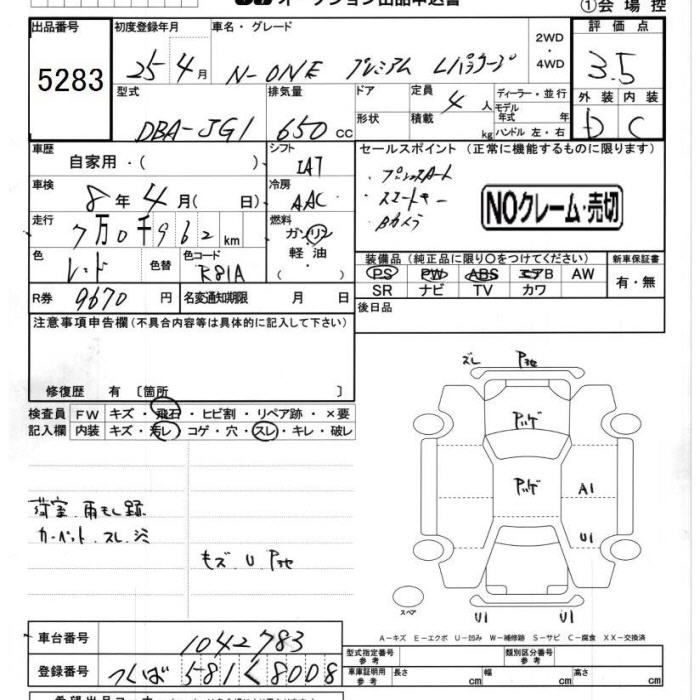 オークション出品申込書
①会場控
出品番号 初度登録年月 車名・グレード 2WD・4WD 評価点
5283 25年4月 N-ONE プレミアム Lパッケージ 3.5
型式 排気量 ドア 定員 4人 ディーラー・並行 外装 内装
DBA-JG1 650cc 形状 積載 kg モデル年式 年 ハンドル 左・右 D C
車歴 自家用・( ) シフト IAT セールスポイント(正常に機能するものに限ります)
・プッシュスタート
・スマートキー
・Bカメラ
NOクレーム・売切
車検 8年4月( 日) 冷房 AAC
走行 7万0千962km 燃料 ガソリン 軽油 ( )
色 レッド 色替 色コード R81A
装備品(純正品に限り○をつけてください) 新車保証書
PS PW ABS エアB AW 有・無
SR ナビ TV カワ
R券 9670円 名変通知期限 月 日 後日品
注意事項申告欄(不具合内容等は具体的に記入して下さい)
修復歴 有 〔箇所 〕
検査員 FW キズ・飛石・ヒビ割・リペア跡・×要
記入欄 内装 キズ・汚レ・コゲ・穴・スレ・キレ・破レ
荷室 雨もし跡
カーペット スレ シミ
キズ U P地
ズレ P地
Pッゲ
Pッゲ
A1
U1
U1 U1
スペア
A-キズ E-エクボ U-凹み W-補修跡 S-サビ C-腐食 XX-交換済
車台番号 1042783
登録番号 つくば 581 く 8008
型式指定番号 参考 類別区分番号 参考
車庫証明用 参考 長さ cm 幅 cm 高さ cm